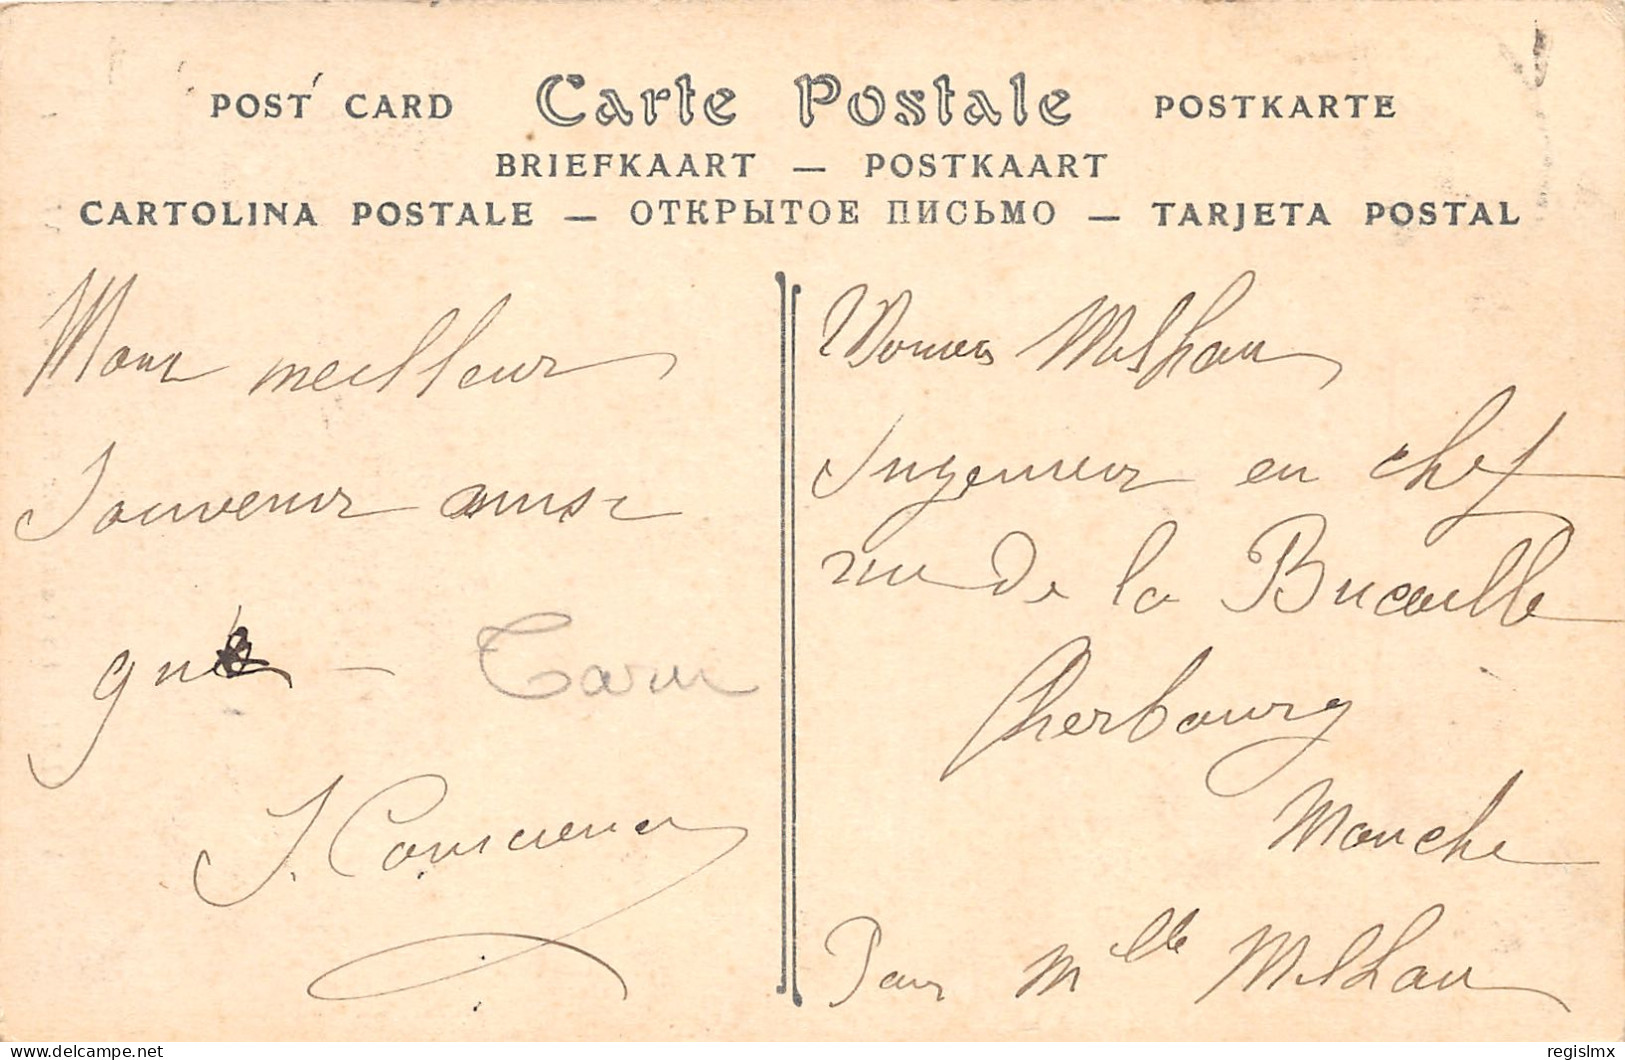 POST CARD Carte Postale POSTKARTE
BRIEFKAART — POSTKAART
CARTOLINA POSTALE — ОТКРЫТОЕ ПИСЬМО — TARJETA POSTAL
meilleur
Souvenir ainsi
Tarn
J.
Milhau
Ingenieur en chef
rue de la Bucaille
Cherbourg
Manche
Pour Mlle Milhau
regislmx